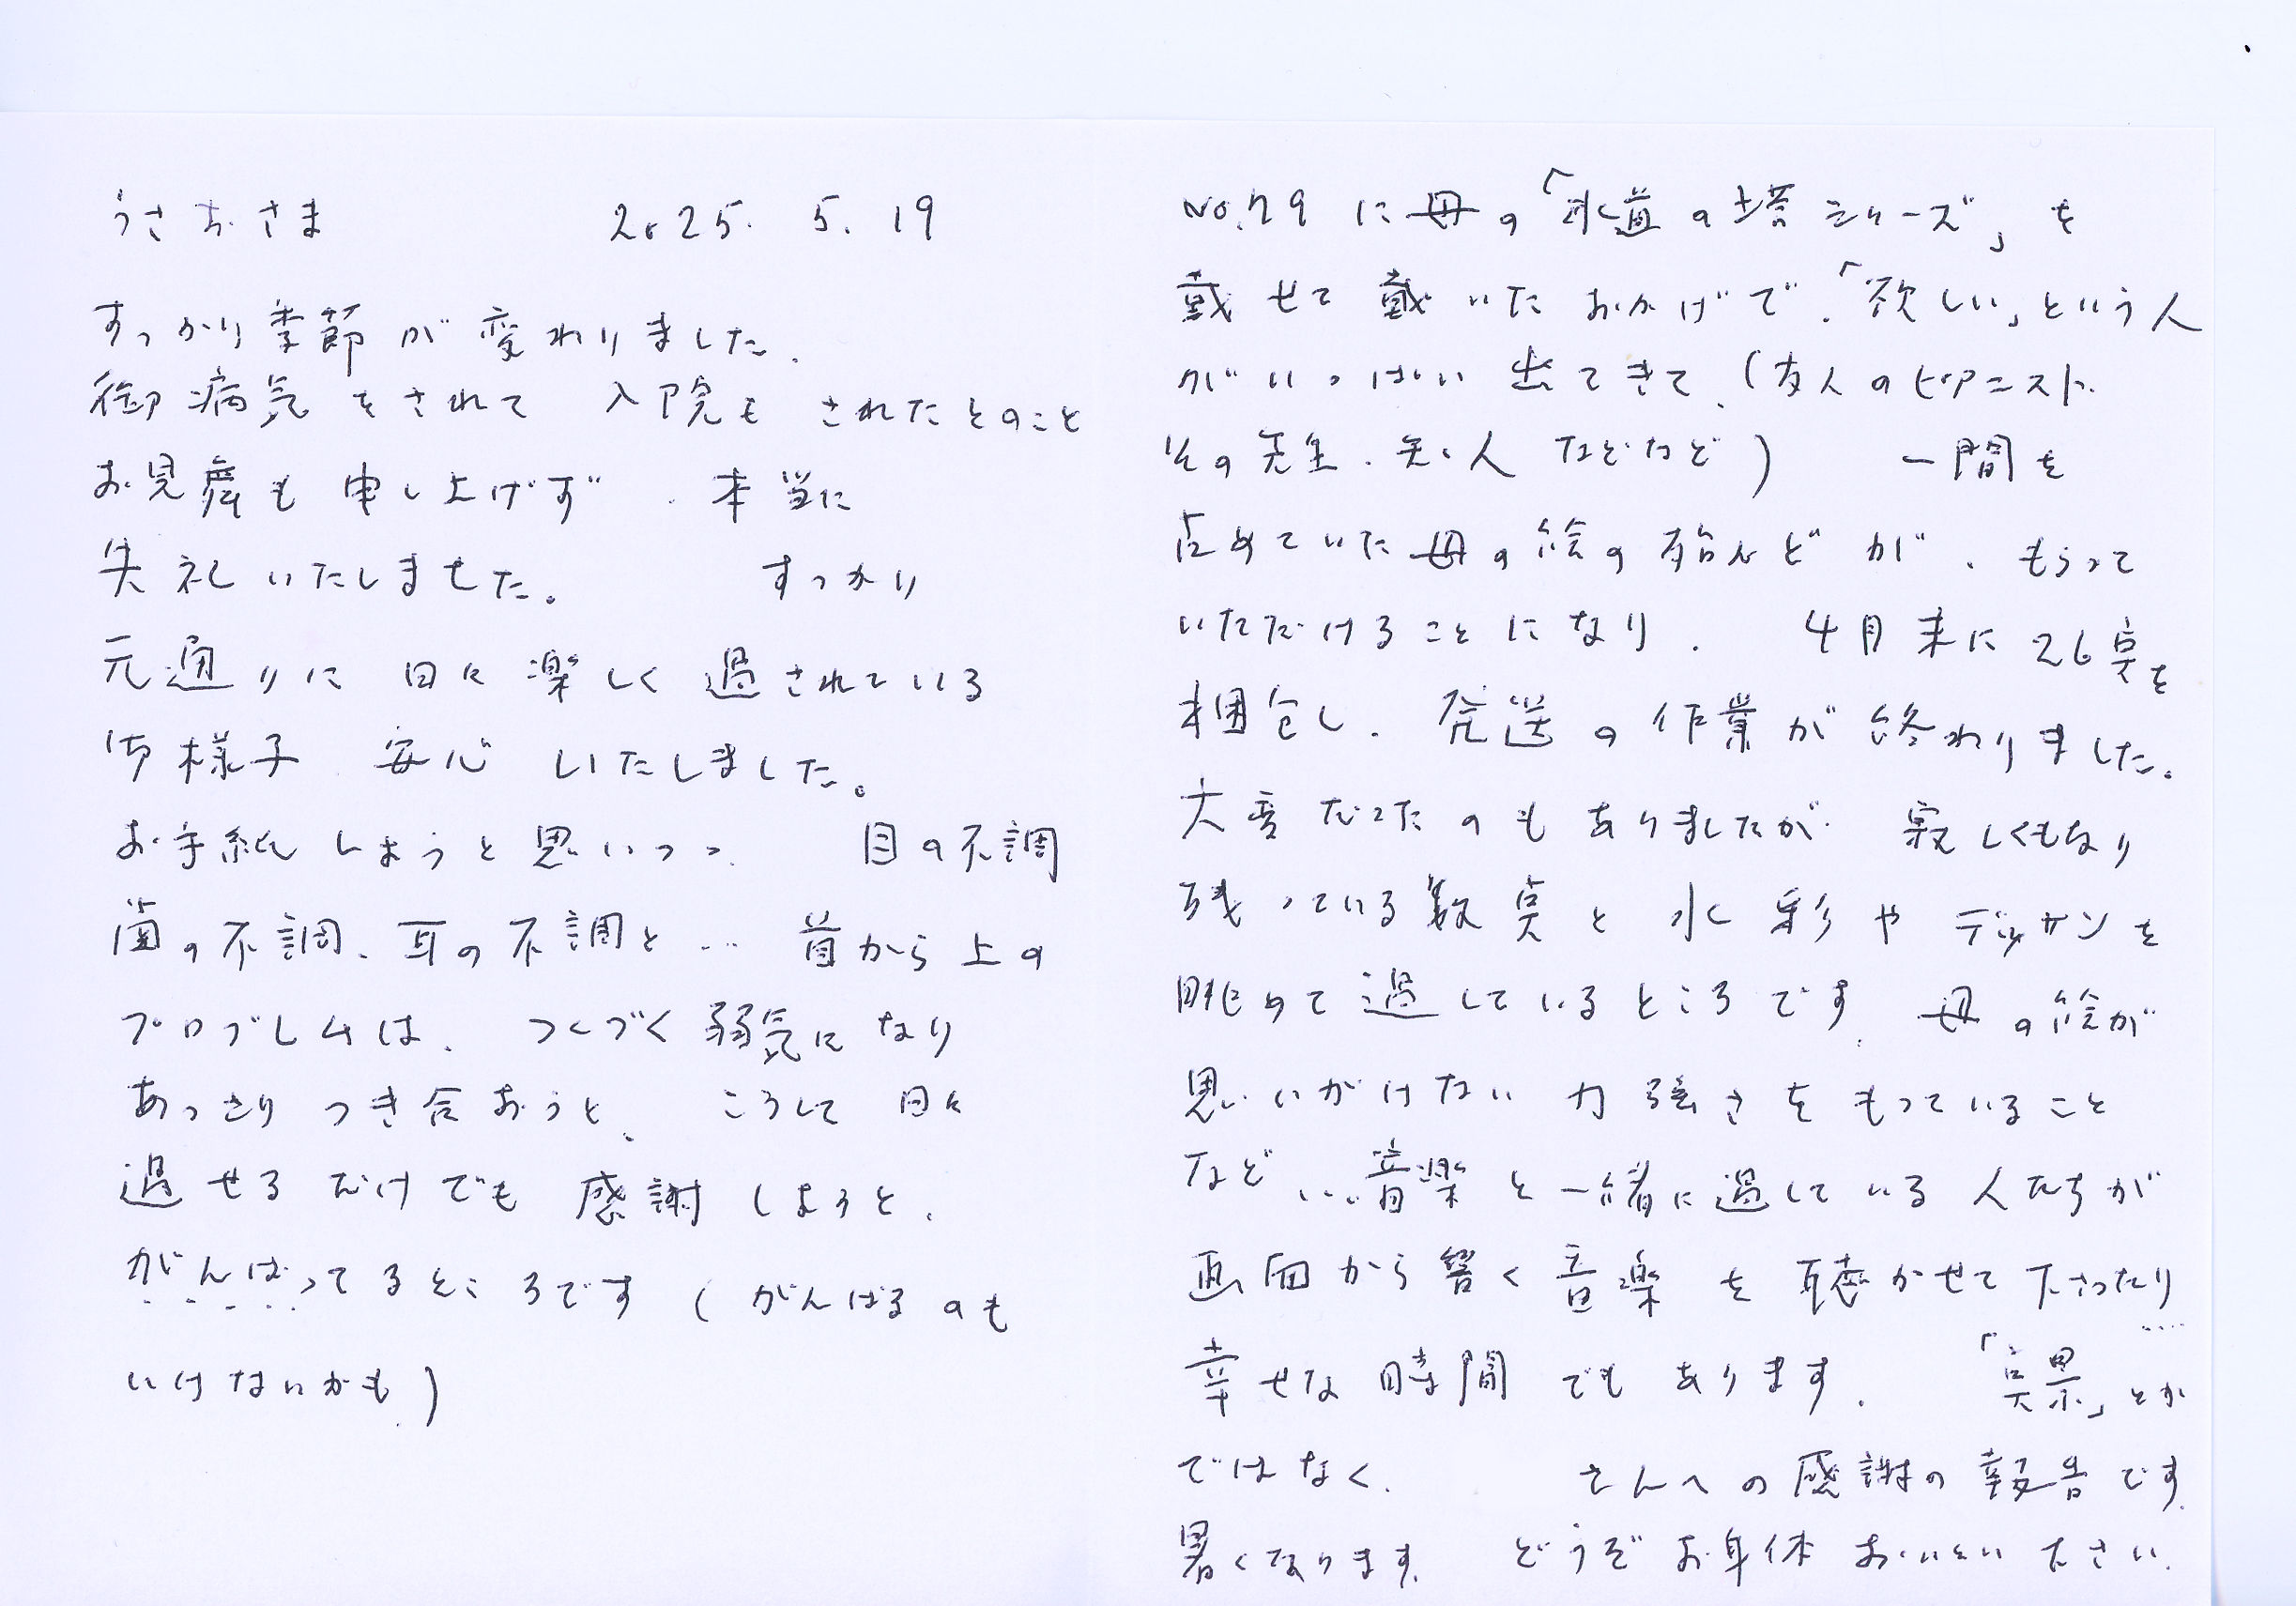 うさおさま 2025. 5. 19
すっかり季節が変わりました.
御病気をされて 入院も されたとのこと
お見舞も申し上げず、本当に
失礼いたしました。 すっかり
元通りに 日々 楽しく 過されている
御様子 安心 いたしました。
お手紙しようと思いつつ、 目の不調
歯の不調、耳の不調と… 首から上の
プロブレムは、 つくづく弱気になり
あっさりつき合おうと、 こうして 日々
過せるだけでも 感謝しようと、
がんばってるところです (がんばるのも
いけないかも)
No.79 に母の「水道の塔シリーズ」を
載せて戴いたおかげで、「欲しい」という人
がいっぱい出てきて、(友人のピアニスト、
その先生、知人などなど) 一間を
占めていた母の絵の殆んどが、もらって
いただけることになり、 4月末に26点を
梱包し、発送の作業が終わりました。
大変だったのもありましたが 寂しくもなり
残っている数点と 水彩や デッサンを
眺めて過しているところです. 母の絵が
思いがけない力強さをもっていること
など…音楽と一緒に過している人たちが
画面から響く音楽を聴かせて下さったり
幸せな時間でもあります.
「 景」とか
ではなく、 さんへの感謝の報告です.
暑くなります. どうぞお身体おいとい下さい.